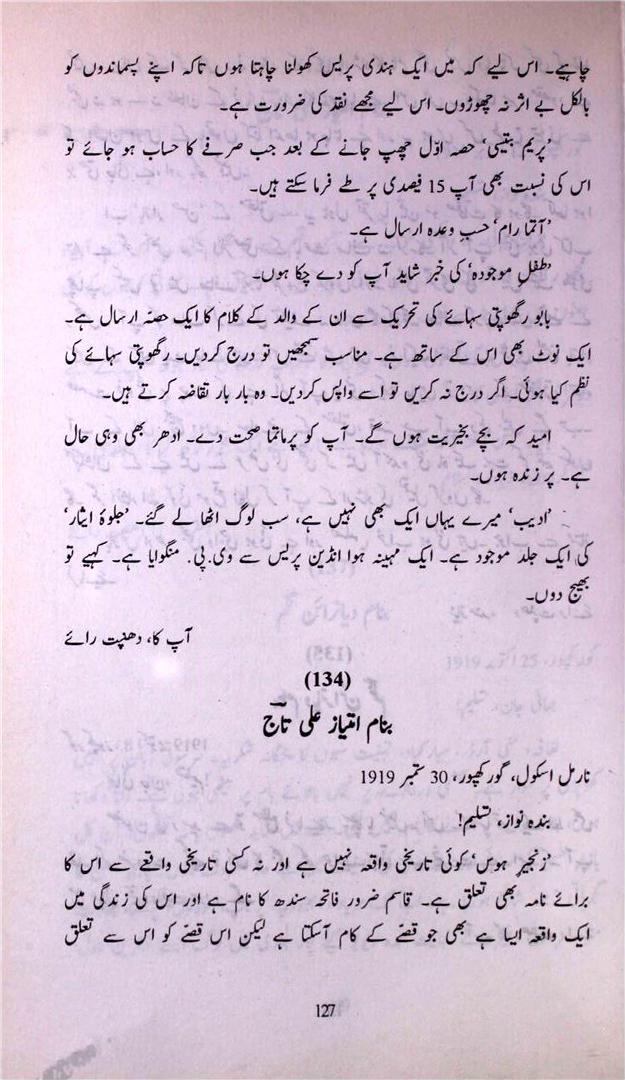 چاہیے۔ اس لیے کہ میں ایک ہندی پریس کھولنا چاہتا ہوں تاکہ اپنے پسماندوں کو
بالکل بے اثر نہ چھوڑوں۔ اس لیے مجھے نقد کی ضرورت ہے۔
'پریم بتیسی' حصہ اوّل چھپ جانے کے بعد جب صرفے کا حساب ہو جائے تو
اس کی نسبت بھی آپ 15 فیصدی پر طے فرما سکتے ہیں۔
'آتما رام' حسب وعدہ ارسال ہے۔
'طفل موجودہ' کی خبر شاید آپ کو دے چکا ہوں۔
بابو رگھوپتی سہائے کی تحریک سے ان کے والد کے کلام کا ایک حصّہ ارسال ہے۔
ایک نوٹ بھی اس کے ساتھ ہے۔ مناسب سمجھیں تو درج کردیں۔ رگھوپتی سہائے کی
نظم کیا ہوئی۔ اگر درج نہ کریں تو اسے واپس کردیں۔ وہ بار بار تقاضہ کرتے ہیں۔
امید کہ بچے بخیریت ہوں گے۔ آپ کو پرماتما صحت دے۔ ادھر بھی وہی حال
ہے۔ پر زندہ ہوں۔
'ادیب' میرے یہاں ایک بھی نہیں ہے، سب لوگ اٹھا لے گئے۔ 'جلوۂ ایثار'
کی ایک جلد موجود ہے۔ ایک مہینہ ہوا انڈین پریس سے وی.پی. منگوایا ہے۔ کہیے تو
بھیج دوں۔
آپ کا، دھنپت رائے
(134)
بنام امتیاز علی تاج
نارمل اسکول، گورکھپور، 30 ستمبر 1919
بندہ نواز، تسلیم!
'زنجیرِ ہوس' کوئی تاریخی واقعہ نہیں ہے اور نہ کسی تاریخی واقعے سے اس کا
برائے نامہ بھی تعلق ہے۔ قاسم ضرور فاتحہ سندھ کا نام ہے اور اس کی زندگی میں
ایک واقعہ ایسا ہے بھی جو قصّے کے کام آسکتا ہے لیکن اس قصّے کو اس سے تعلق
127